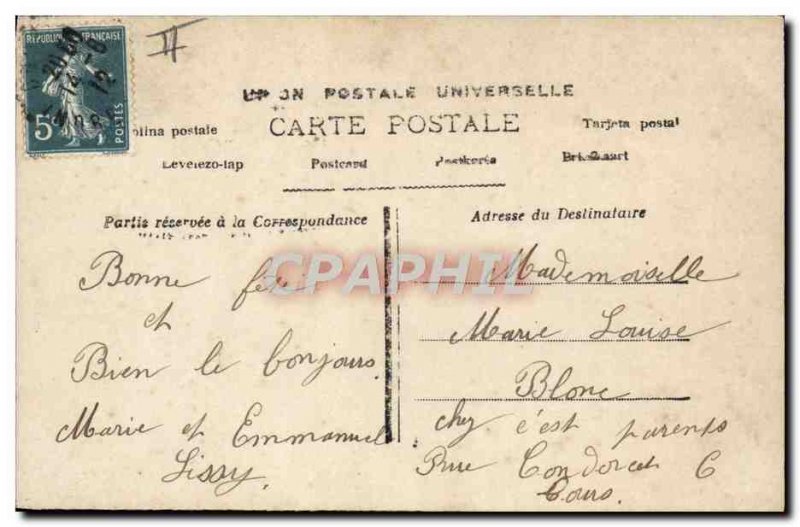 RÉPUBLIQUE FRANÇAISE
5c POSTES
UNION POSTALE UNIVERSELLE
CARTE POSTALE
olina postale
Tarjeta postal
Levelezo-lap
Postcard
Postkorta
Partie réservée à la Correspondance
Adresse du Destinataire
CPAPHIL
Bonne fête
et
Bien le bonjours
Marie et Emmanuel
Lissy
Mademoiselle
Marie Louise
Blonc
chez c'est parents
Rue Condorcet 6
Cours.